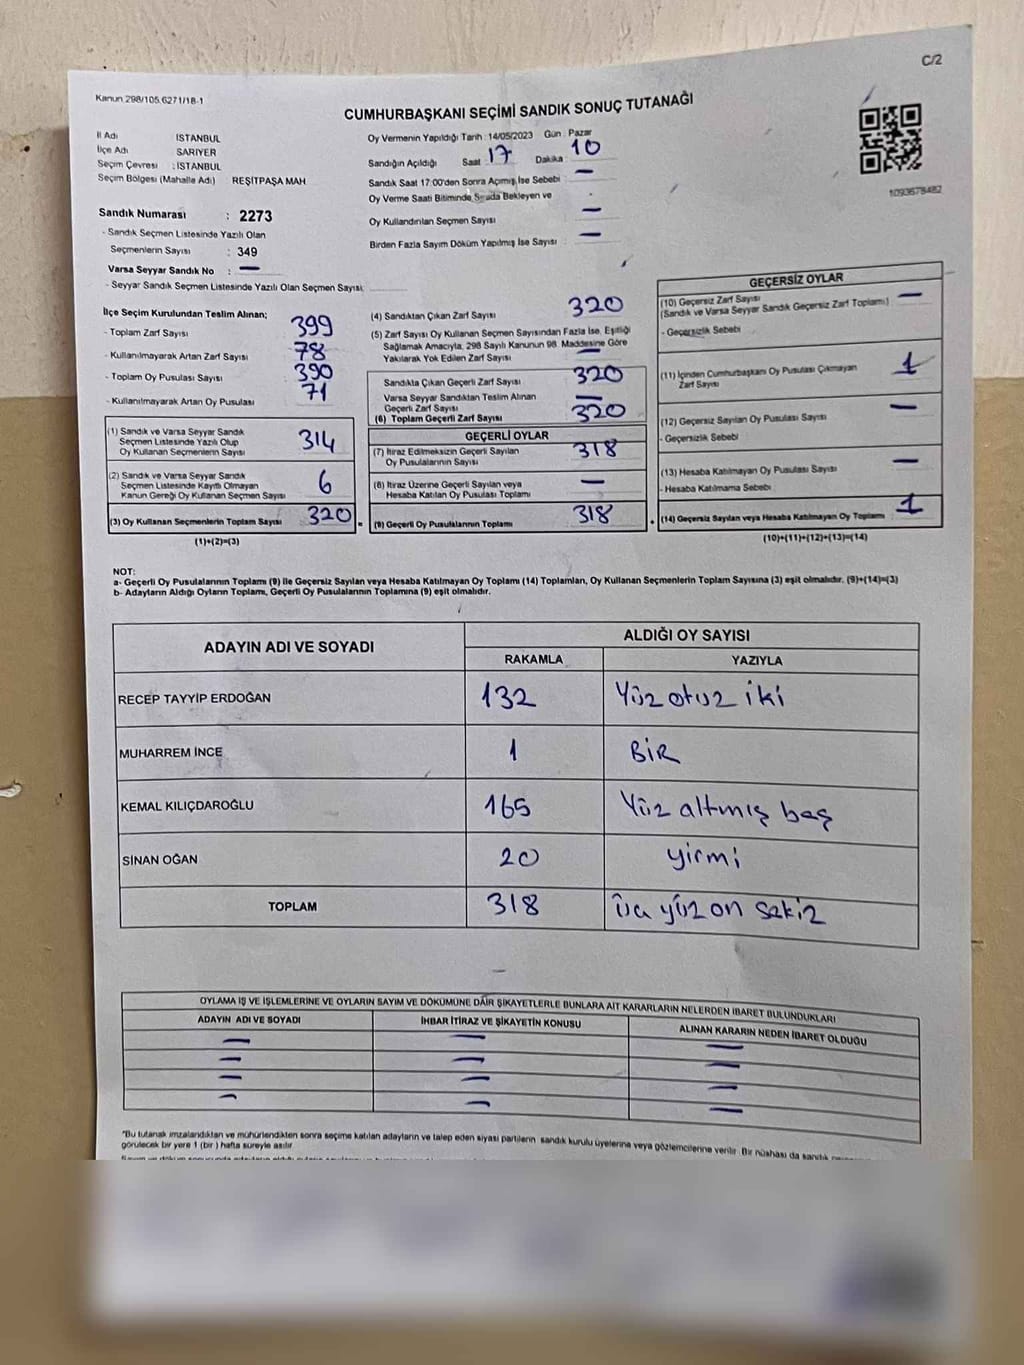 C/2
Kanun 298/105.6271/18-1
CUMHURBAŞKANI SEÇİMİ SANDIK SONUÇ TUTANAĞI
İl Adı İSTANBUL
İlçe Adı SARIYER
Seçim Çevresi : İSTANBUL
Seçim Bölgesi (Mahalle Adı) REŞİTPAŞA MAH
Sandık Numarası : 2273
- Sandık Seçmen Listesinde Yazılı Olan
Seçmenlerin Sayısı : 349
Varsa Seyyar Sandık No : —
- Seyyar Sandık Seçmen Listesinde Yazılı Olan Seçmen Sayısı:
Oy Vermenin Yapıldığı Tarih : 14/05/2023 Gün : Pazar
Sandığın Açıldığı Saat 17 Dakika 10
Sandık Saat 17:00'den Sonra Açımış İse Sebebi : —
Oy Verme Saati Bitiminde Sırada Bekleyen ve
Oy Kullandırılan Seçmen Sayısı —
Birden Fazla Sayım Döküm Yapılmış İse Sayısı —
1093678482
İlçe Seçim Kurulundan Teslim Alınan;
- Toplam Zarf Sayısı 399
- Kullanılmayarak Artan Zarf Sayısı 78
- Toplam Oy Pusulası Sayısı 390
- Kullanılmayarak Artan Oy Pusulası 71
(1) Sandık ve Varsa Seyyar Sandık
Seçmen Listesinde Yazılı Olup
Oy Kullanan Seçmenlerin Sayısı 314
(2) Sandık ve Varsa Seyyar Sandık
Seçmen Listesinde Kayıtlı Olmayan
Kanun Gereği Oy Kullanan Seçmen Sayısı 6
(3) Oy Kullanan Seçmenlerin Toplam Sayısı 320
(1)+(2)=(3)
(4) Sandıktan Çıkan Zarf Sayısı 320
(5) Zarf Sayısı Oy Kullanan Seçmen Sayısından Fazla İse, Eşitliği
Sağlamak Amacıyla, 298 Sayılı Kanunun 98. Maddesine Göre
Yakılarak Yok Edilen Zarf Sayısı —
Sandıkta Çıkan Geçerli Zarf Sayısı 320
Varsa Seyyar Sandıktan Teslim Alınan
Geçerli Zarf Sayısı —
(6) Toplam Geçerli Zarf Sayısı 320
GEÇERLİ OYLAR
(7) İtiraz Edilmeksizin Geçerli Sayılan
Oy Pusulalarının Sayısı 318
(8) İtiraz Üzerine Geçerli Sayılan veya
Hesaba Katılan Oy Pusulası Toplamı —
= (9) Geçerli Oy Pusulalarının Toplamı 318
GEÇERSİZ OYLAR
(10) Geçersiz Zarf Sayısı —
(Sandık ve Varsa Seyyar Sandık Geçersiz Zarf Toplamı)
- Geçersizlik Sebebi
(11) İçinden Cumhurbaşkanı Oy Pusulası Çıkmayan
Zarf Sayısı 1
(12) Geçersiz Sayılan Oy Pusulası Sayısı —
- Geçersizlik Sebebi
(13) Hesaba Katılmayan Oy Pusulası Sayısı —
- Hesaba Katılmama Sebebi
+ (14) Geçersiz Sayılan veya Hesaba Katılmayan Oy Toplamı 1
(10)+(11)+(12)+(13)=(14)
NOT:
a- Geçerli Oy Pusulalarının Toplamı (9) ile Geçersiz Sayılan veya Hesaba Katılmayan Oy Toplamı (14) Toplamları, Oy Kullanan Seçmenlerin Toplam Sayısına (3) eşit olmalıdır. (9)+(14)=(3)
b- Adayların Aldığı Oyların Toplamı, Geçerli Oy Pusulalarının Toplamına (9) eşit olmalıdır.
ADAYIN ADI VE SOYADI ALDIĞI OY SAYISI
RAKAMLA YAZIYLA
RECEP TAYYİP ERDOĞAN 132 Yüz otuz iki
MUHARREM İNCE 1 BİR
KEMAL KILIÇDAROĞLU 165 Yüz altmış beş
SİNAN OĞAN 20 yirmi
TOPLAM 318 üç yüz on sekiz
OYLAMA İŞ VE İŞLEMLERİNE VE OYLARIN SAYIM VE DÖKÜMÜNE DAİR ŞİKAYETLERLE BUNLARA AİT KARARLARIN NELERDEN İBARET BULUNDUKLARI
ADAYIN ADI VE SOYADI İHBAR İTİRAZ VE ŞİKAYETİN KONUSU ALINAN KARARIN NEDEN İBARET OLDUĞU
— — —
— — —
— — —
— — —
"Bu tutanak imzalandıktan ve mühürlendikten sonra seçime katılan adayların ve talep eden siyasi partilerin sandık kurulu üyelerine veya gözlemcilerine verilir. Bir nüshası da sandık
görülecek bir yere 1 (bir) hafta süreyle asılır